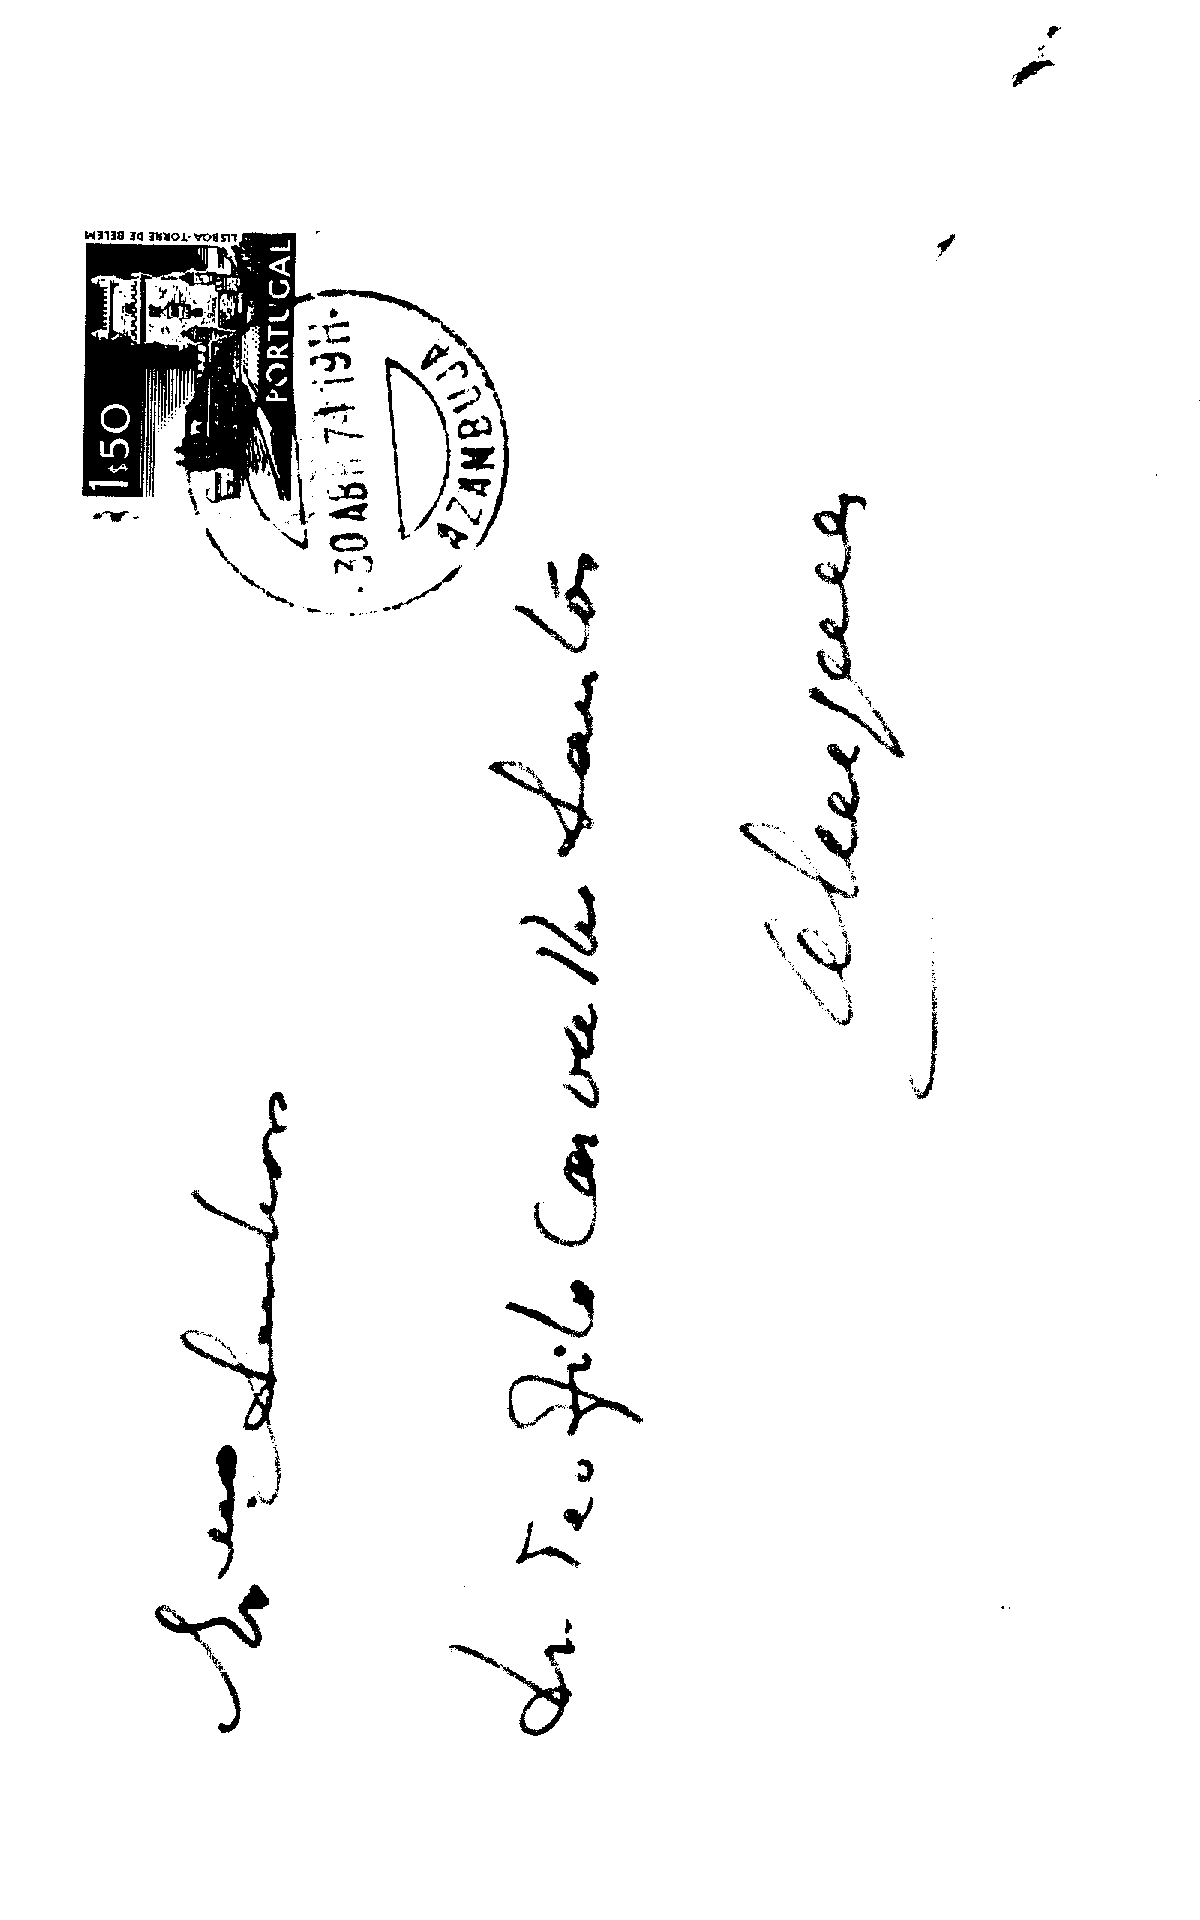 LISBOA-TORRE DE BELEM
1$50
PORTUGAL
30 ABR 74 19H
AZAMBUJA
Senhor
Dr. Teofilo Carvalho Santos
Alenquer